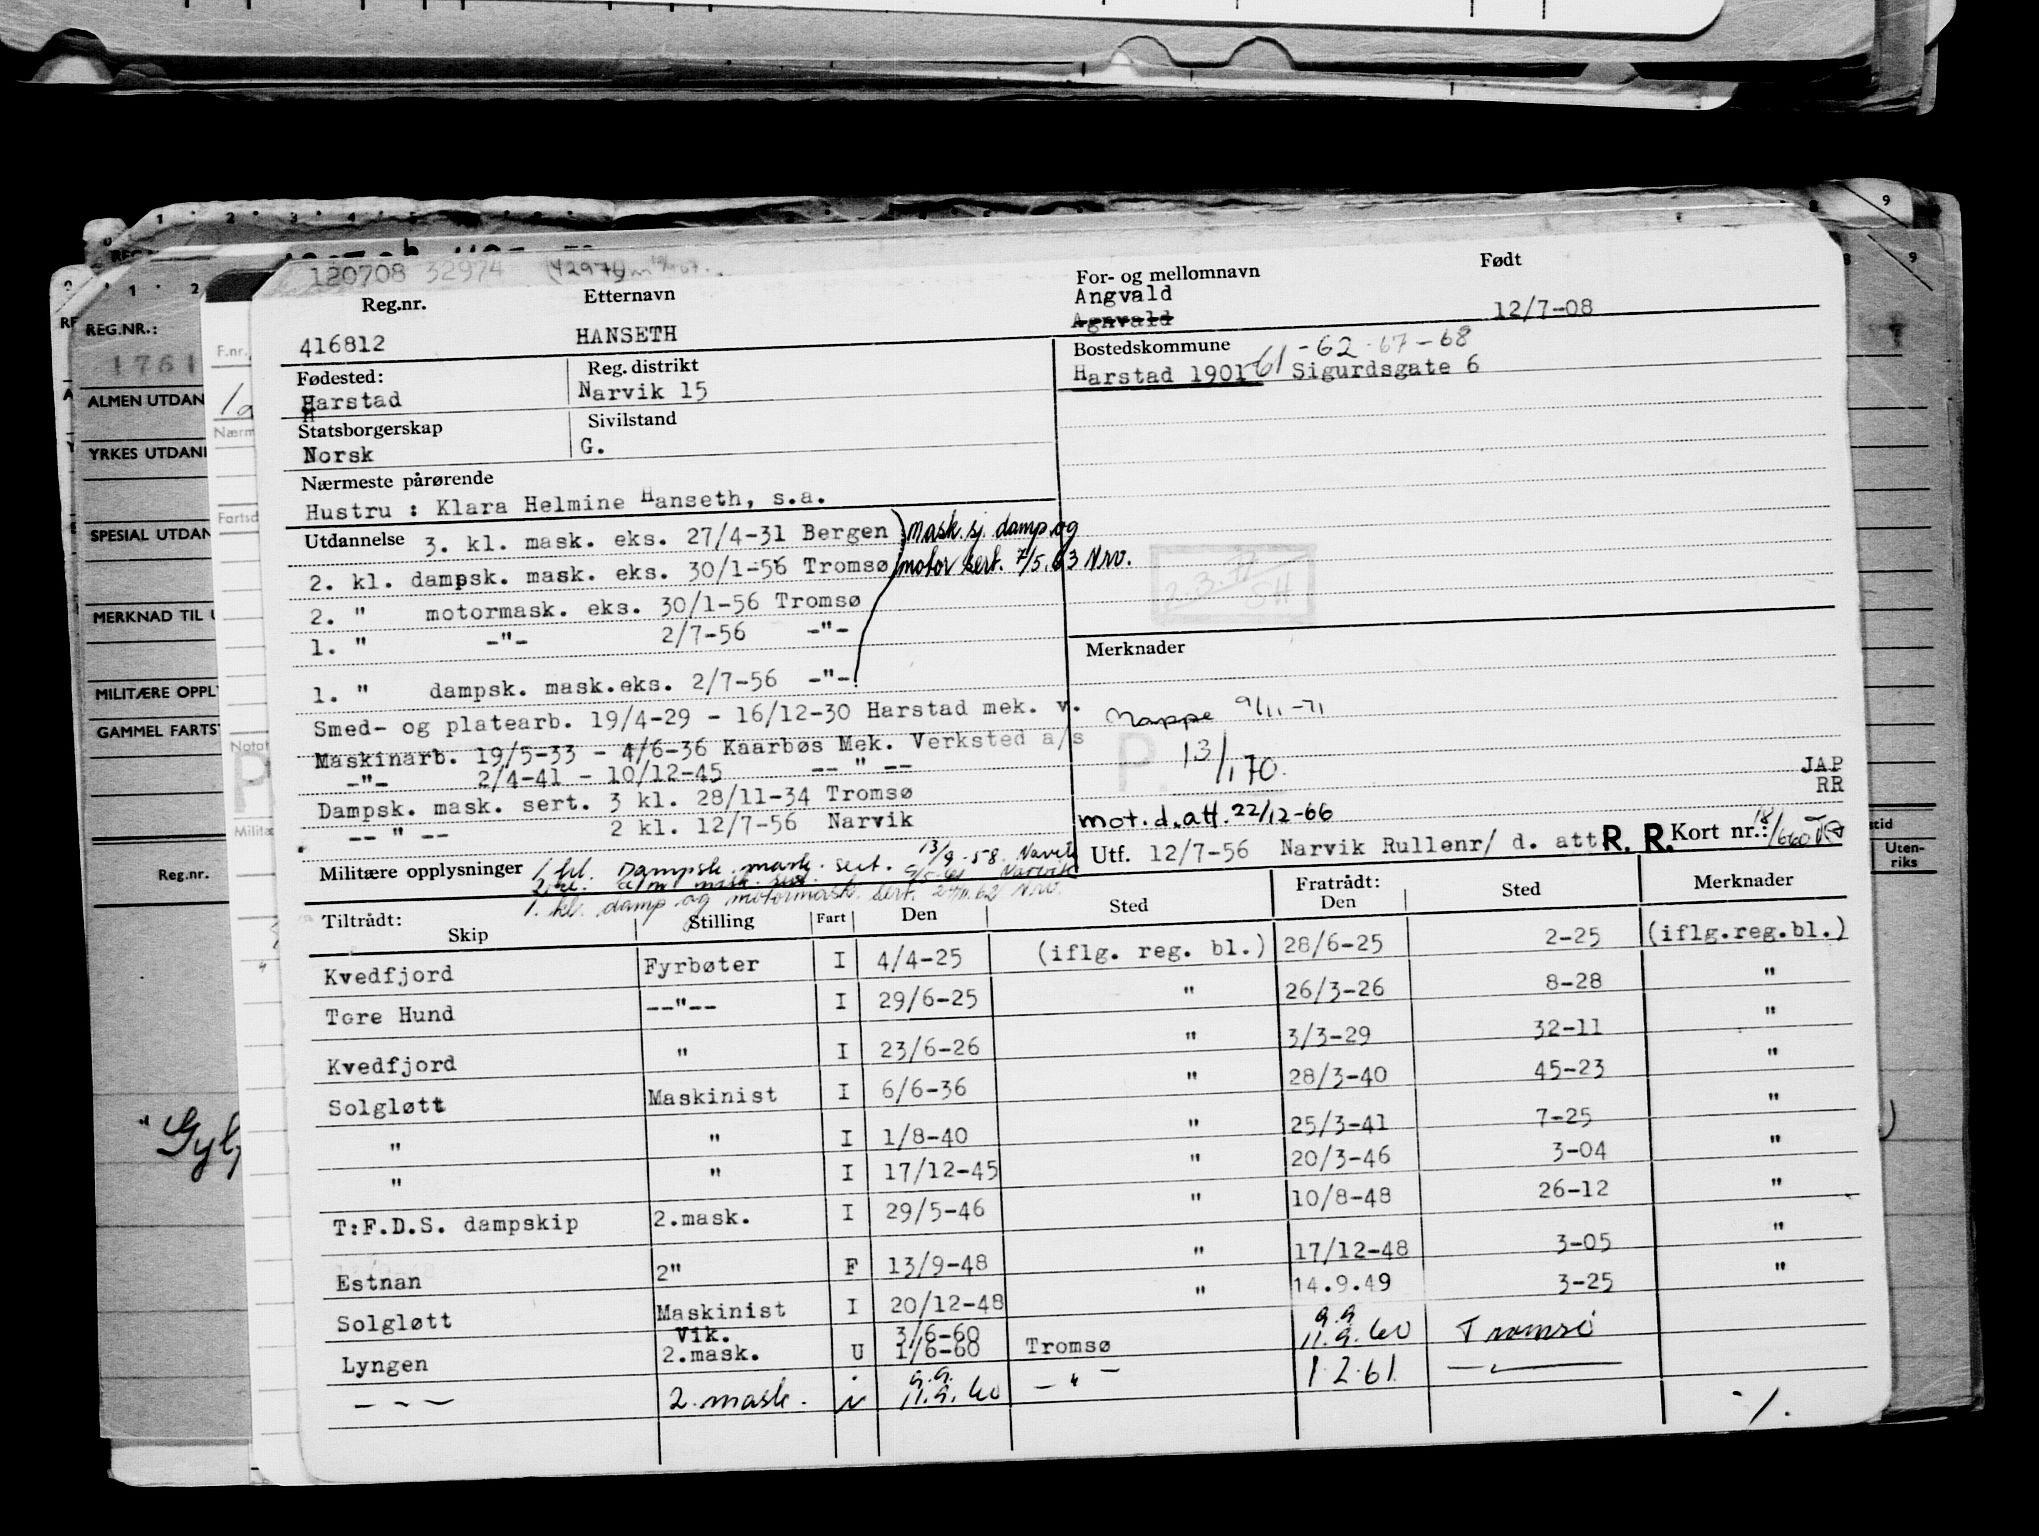 120708 32974
Reg.nr. Etternavn For- og mellomnavn Født
416812 HANSETH Angvald 12/7-08
Agnvald
Fødested: Reg. distrikt Bostedskommune 61-62-67-68
Harstad Narvik 15 Harstad 1901 Sigurdsgate 6
Statsborgerskap Sivilstand
Norsk G.
Nærmeste pårørende
Hustru : Klara Helmine Hanseth, s.a.
Utdannelse 3. kl. mask. eks. 27/4-31 Bergen mask. sj. damp og
2. kl. dampsk. mask. eks. 30/1-56 Tromsø motor sert. 7/5.63 Nrv.
2. " motormask. eks. 30/1-56 Tromsø
1. " -"- 2/7-56 -"-
1. " dampsk. mask.eks. 2/7-56 -"-
Smed- og platearb. 19/4-29 - 16/12-30 Harstad mek. v.
Maskinarb. 19/5-33 - 4/6-36 Kaarbøs Mek. Verksted a/s
-"- 2/4-41 - 10/12-45 -- " --
Dampsk. mask. sert. 3 kl. 28/11-34 Tromsø
-- " -- 2 kl. 12/7-56 Narvik
2.3.77
SH
Merknader
Mappe 9/11-71
P.
13/1 70.
JAP
RR
mot. d. att. 22/12-66
Utf. 12/7-56 Narvik Rullenr/ d. att R. R. Kort nr.:
Militære opplysninger 1 kl. Dampsk. mask. sert. 13/9-58 Narvik
1. kl. damp og motormask. sert. Nrv.
Tiltrådt: Fratrådt:
Skip Stilling Fart Den Sted Den Sted Merknader
Kvedfjord Fyrbøter I 4/4-25 (iflg. reg. bl.) 28/6-25 2-25 (iflg.reg.bl.)
Tore Hund --"-- I 29/6-25 " 26/3-26 8-28 "
Kvedfjord " I 23/6-26 " 3/3-29 32-11 "
Solgløtt Maskinist I 6/6-36 " 28/3-40 45-23 "
" " I 1/8-40 " 25/3-41 7-25 "
" " I 17/12-45 " 20/3-46 3-04 "
T:F.D.S. dampskip 2.mask. I 29/5-46 " 10/8-48 26-12 "
Estnan 2" F 13/9-48 " 17/12-48 3-05 "
Solgløtt Maskinist I 20/12-48 " 14.9.49 3-25 "
Vik. 3/6-60 9.9
Lyngen 2.mask. U 1/6-60 Tromsø 11.9.60 Tromsø
- - - 2.mask. i 9.9. 11.9.60 - " - 1.2.61
./.
REG.NR.:
1761
ALMEN UTDAN
YRKES UTDAN
SPESIAL UTDAN
MERKNAD TIL U
MILITÆRE OPPL
GAMMEL FARTS
Reg.nr.
F.nr.
Nærm
Fartsd
Notat
P
Milita
"Gylf
Uten-
riks